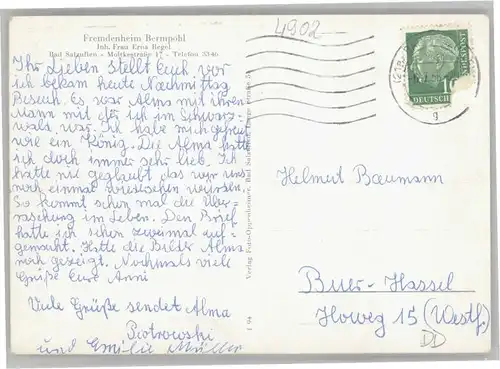 4902
Fremdenheim Bermpohl
Inh. Frau Erna Regel
Bad Salzuflen - Moltkestraße 17 - Telefon 3346
Ihr Lieben stellt Euch vor
ich bekam heute Nachmittag
Besuch. Es war Alma mit ihren
Mann mit der ich im Schwarz-
wald war. Ich habe mich gefreut
wie ein König. Die Alma hatte
ich doch immer sehr lieb. Ich
hatte nie geglaubt das wir uns
noch einmal wiedersehen würden.
So kommt schon mal die Über
raschung im Leben. Den Brief
hatte ich schon zweimal auf-
gemacht. Hatte die Bilder Alma
noch gezeigt. Nochmals viele
Grüße Eure Anni
Viele Grüße sendet Alma
Piotrowski
und Emilie Müller
Verlag Foto-Oppenheimer, Bad Salzuflen
194
10
DEUTSCHE
BUNDESPOST
Helmut Baumann
Buer-Hassel
Howeg 15 (Westf.)